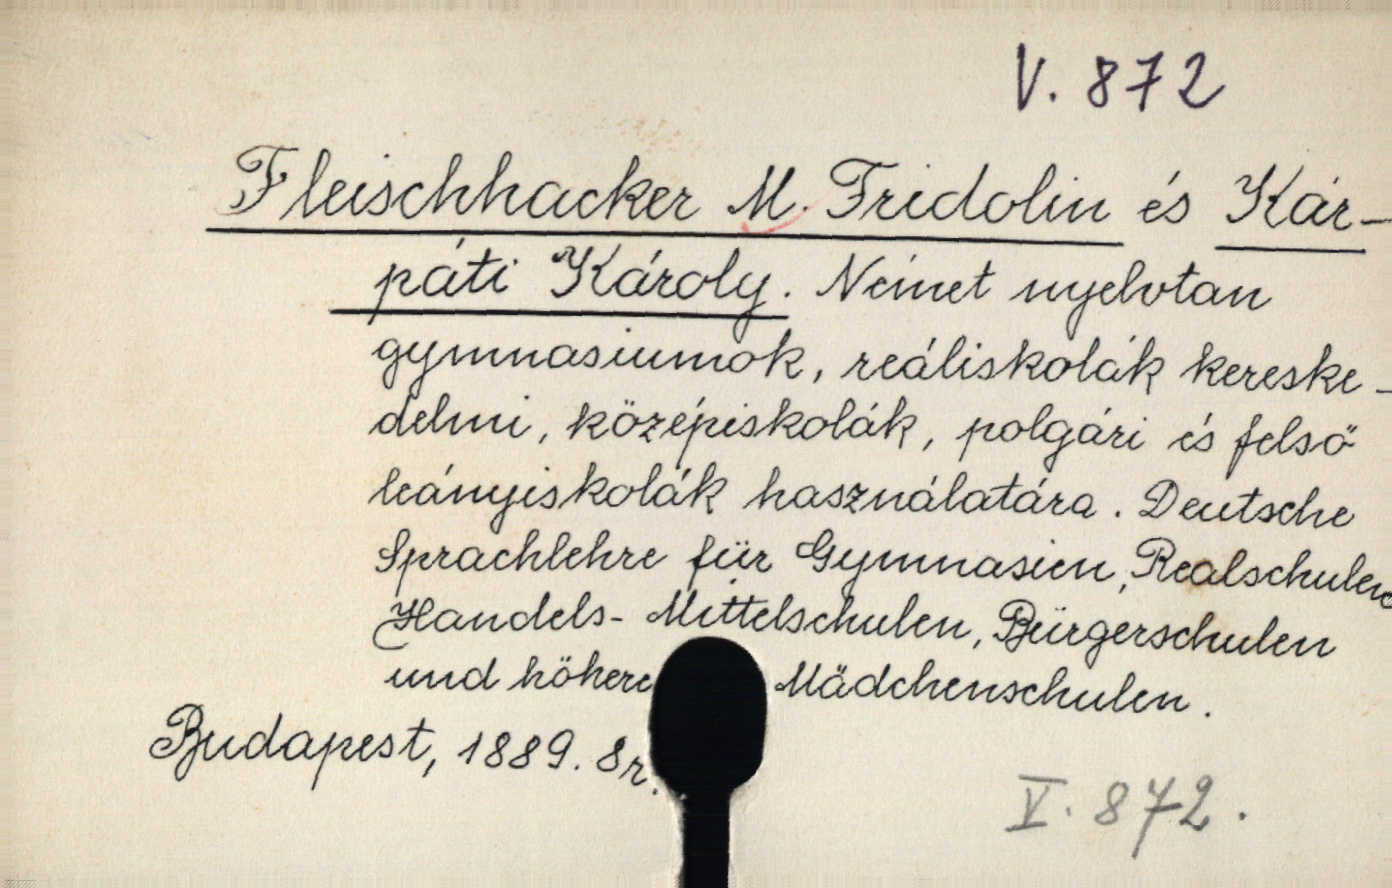 V. 872
Fleischhacker M. Fridolin és Kár-
páti Károly. Német nyelvtan
gymnasiumok, reáliskolák kereske-
delmi, középiskolák, polgári és felső
leányiskolák használatára. Deutsche
Sprachlehre für Gymnasien, Realschulen
Handels- Mittelschulen, Bürgerschulen
und höhere Mädchenschulen.
Budapest, 1889. 8r.
V. 872.